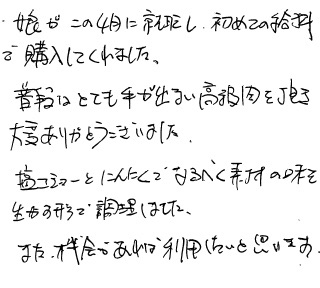 ・娘がこの4月に就職し、初めての給料
で購入してくれました。
普段はとても手が出ない高級肉を頂き
大変ありがとうございました。
塩コショーとにんにくでなるべく素材の味を
生かす形で調理しました。
また、機会があれば利用したいと思います。